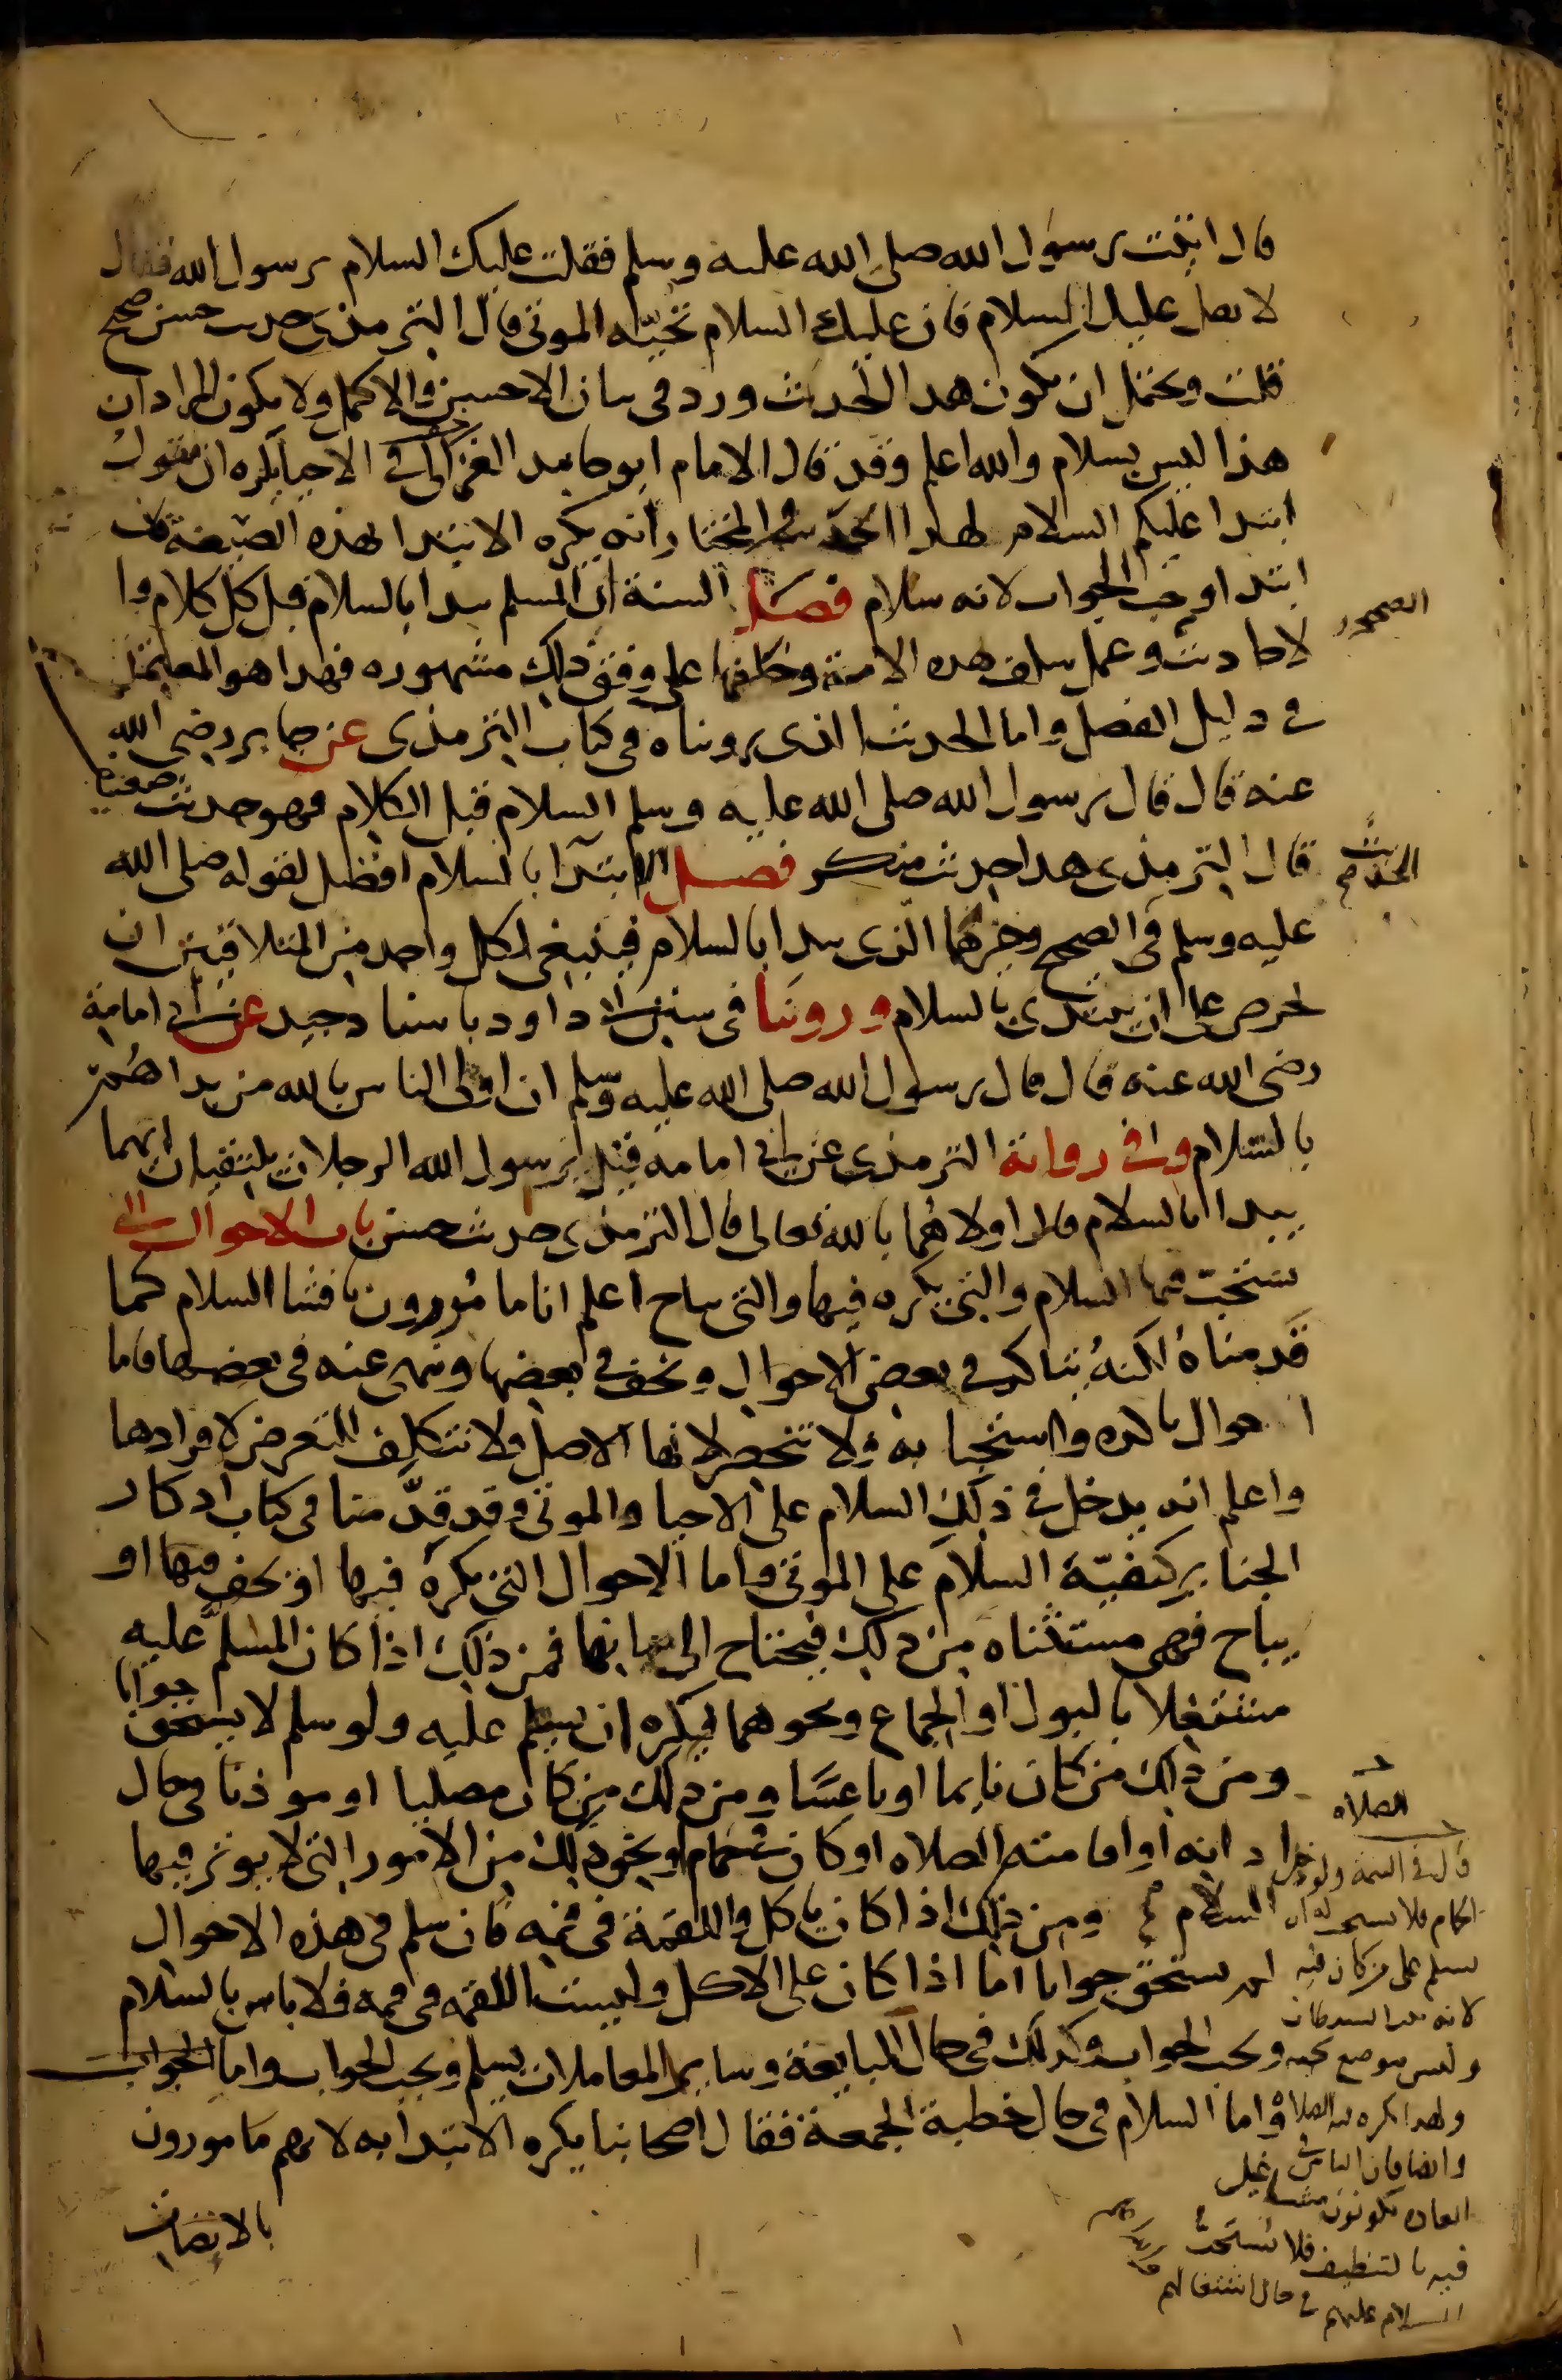 قال اتيت رسول الله صلى الله عليه وسلم فقلت عليك السلام يرسول الله فقال
لا تقل عليك السلام فان عليك السلام تحيّه الموتى قال الترمذي حديث حسن صحيح
قلت ويحتمل ان يكون هدا الحديث ورد في بيان الاحسن والاكمل ولا يكون المراد ان
هذا ليس بسلام والله اعلم وقد قال الامام ابو حامد الغزالي في الاحيا يكره ان يقول
ابتدا عليكم السلام لهدا الحديث والمختار انه يكره الابتدا بهذه الصيغة فان
ابتدا وجب الجواب لانه سلام فصل السنة ان المسلم يبدا بالسلام قبل كل كلام وا
الصحيحه
لاحاديث وعمل سلف هده الامة وخلفها على وفق ذلك مشهوره فهدا هو المعتمد
في دليل الفصل واما الحديث الذي رويناه في كتاب الترمذي عن جابر رضي الله
عنه قال قال رسول الله صلى الله عليه وسلم السلام قبل الكلام فهو حديث ضعيف
قال الترمذي هدا حديث منكر فصل الابتدا بالسلام افضل لقوله صلى الله
الحديث صح
عليه وسلم في الصحيح وخيرهما الذي يبدا بالسلام فينبغي لكل واحد من المتلاقيين ان
يحرص على ان يبتدي بالسلام وروينا في سنن ابي داود باسناد جيد عن ابي امامة
رضي الله عنه قال قال رسول الله صلى الله عليه وسلم ان اولى الناس بالله من بداهم
بالسلام وفي رواية الترمذي عن ابي امامه قيل يرسول الله الرجلان يلتقيان ايهما
يبدا بالسلام قال اولاهما بالله تعالى قال الترمذي حديث حسن باب الاحوال التي
يستحب فيها السلام والتي يكره فيها والتي يباح اعلم انا مامورون بافشا السلام كما
قدمناه لكنه يتاكد في بعض الاحوال ويخف في بعضها ونهي عنه في بعضها فاما
احوال تاكده واستحبابه فلا تنحصر لانها الاصل فلا نتكلف التعرض لافرادها
واعلم انه يدخل في ذلك السلام على الاحيا والموتى وقد قدّمنا في كتاب ادكار
الجنايز كيفيّة السلام على الموتى واما الاحوال التي يكره فيها او يخف فيها او
يباح فهي مستثناه من دلك فيحتاج الى بيانها فمن ذلك اذا كان المسلم عليه
مشتغلا بالبول او الجماع ونحوهما فيكره ان يسلم عليه ولو سلم لا يستحق جوابا
ومن ذلك من كان نايما او ناعسا ومن دلك من كان مصليا او موذنا في حال
ادانه او اقامته الصلاه او كان في حمام او نحو دلك من الامور التي لا يوثر فيها
السلام ومن ذلك اذا كان ياكل واللقمة في فمه فان سلم في هذه الاحوال
لم يستحق جوابا اما اذا كان على الاكل وليست اللقمه في فمه فلا باس بالسلام
ويجب الجواب وكدلك في حال المبايعة وساير المعاملات يسلم ويجب الجواب واما الجواب
واما السلام في حال خطبة الجمعة فقال اصحابنا يكره الابتدا به لانهم مامورون
بالانصات
الصلاه
قال في التتمه ولو دخل
الحمام فلا يستحب له ان
يسلم على من كان فيه
لانه بيت الشيطان
وليس موضع تحيه
ولهدا يكره فيه الصلاة
وايضا فان الناس في
العادة يكونون مشاغيل
فيه بالتنظيف فلا يستحب
السلام عليهم في حال اشتغالهم